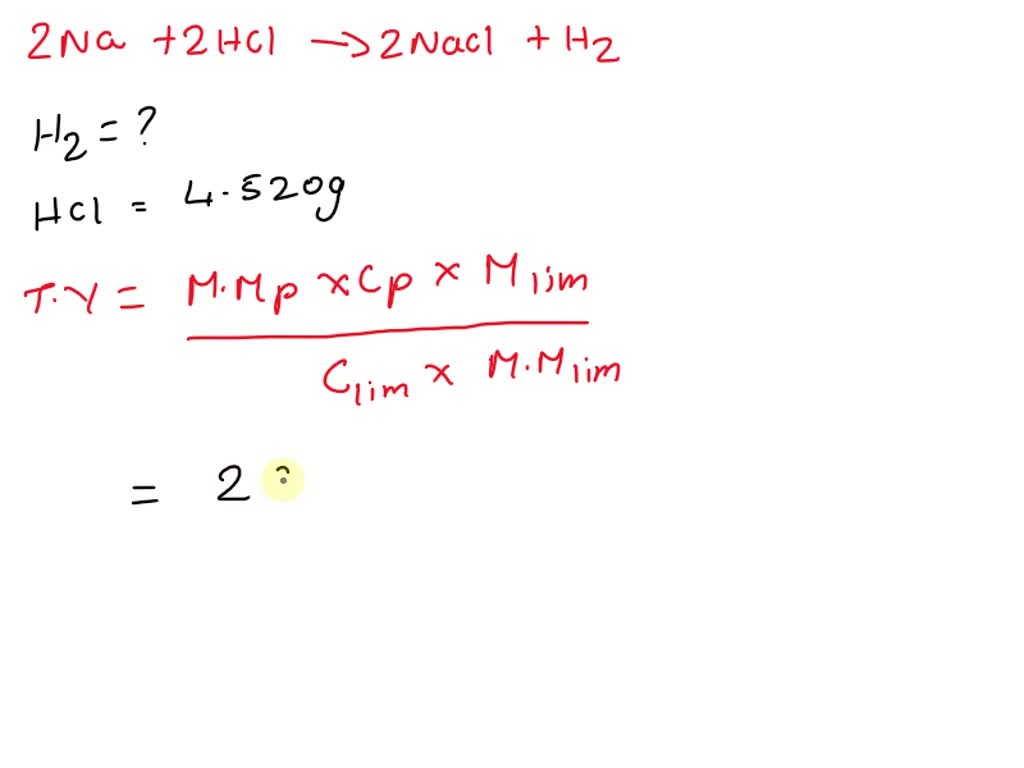 2Na + 2HCl → 2Nacl + H2
H2 = ?
HCl = 4.520g
T.Y = M.Mp x Cp x Mlim
Clim x M.Mlim
= 2